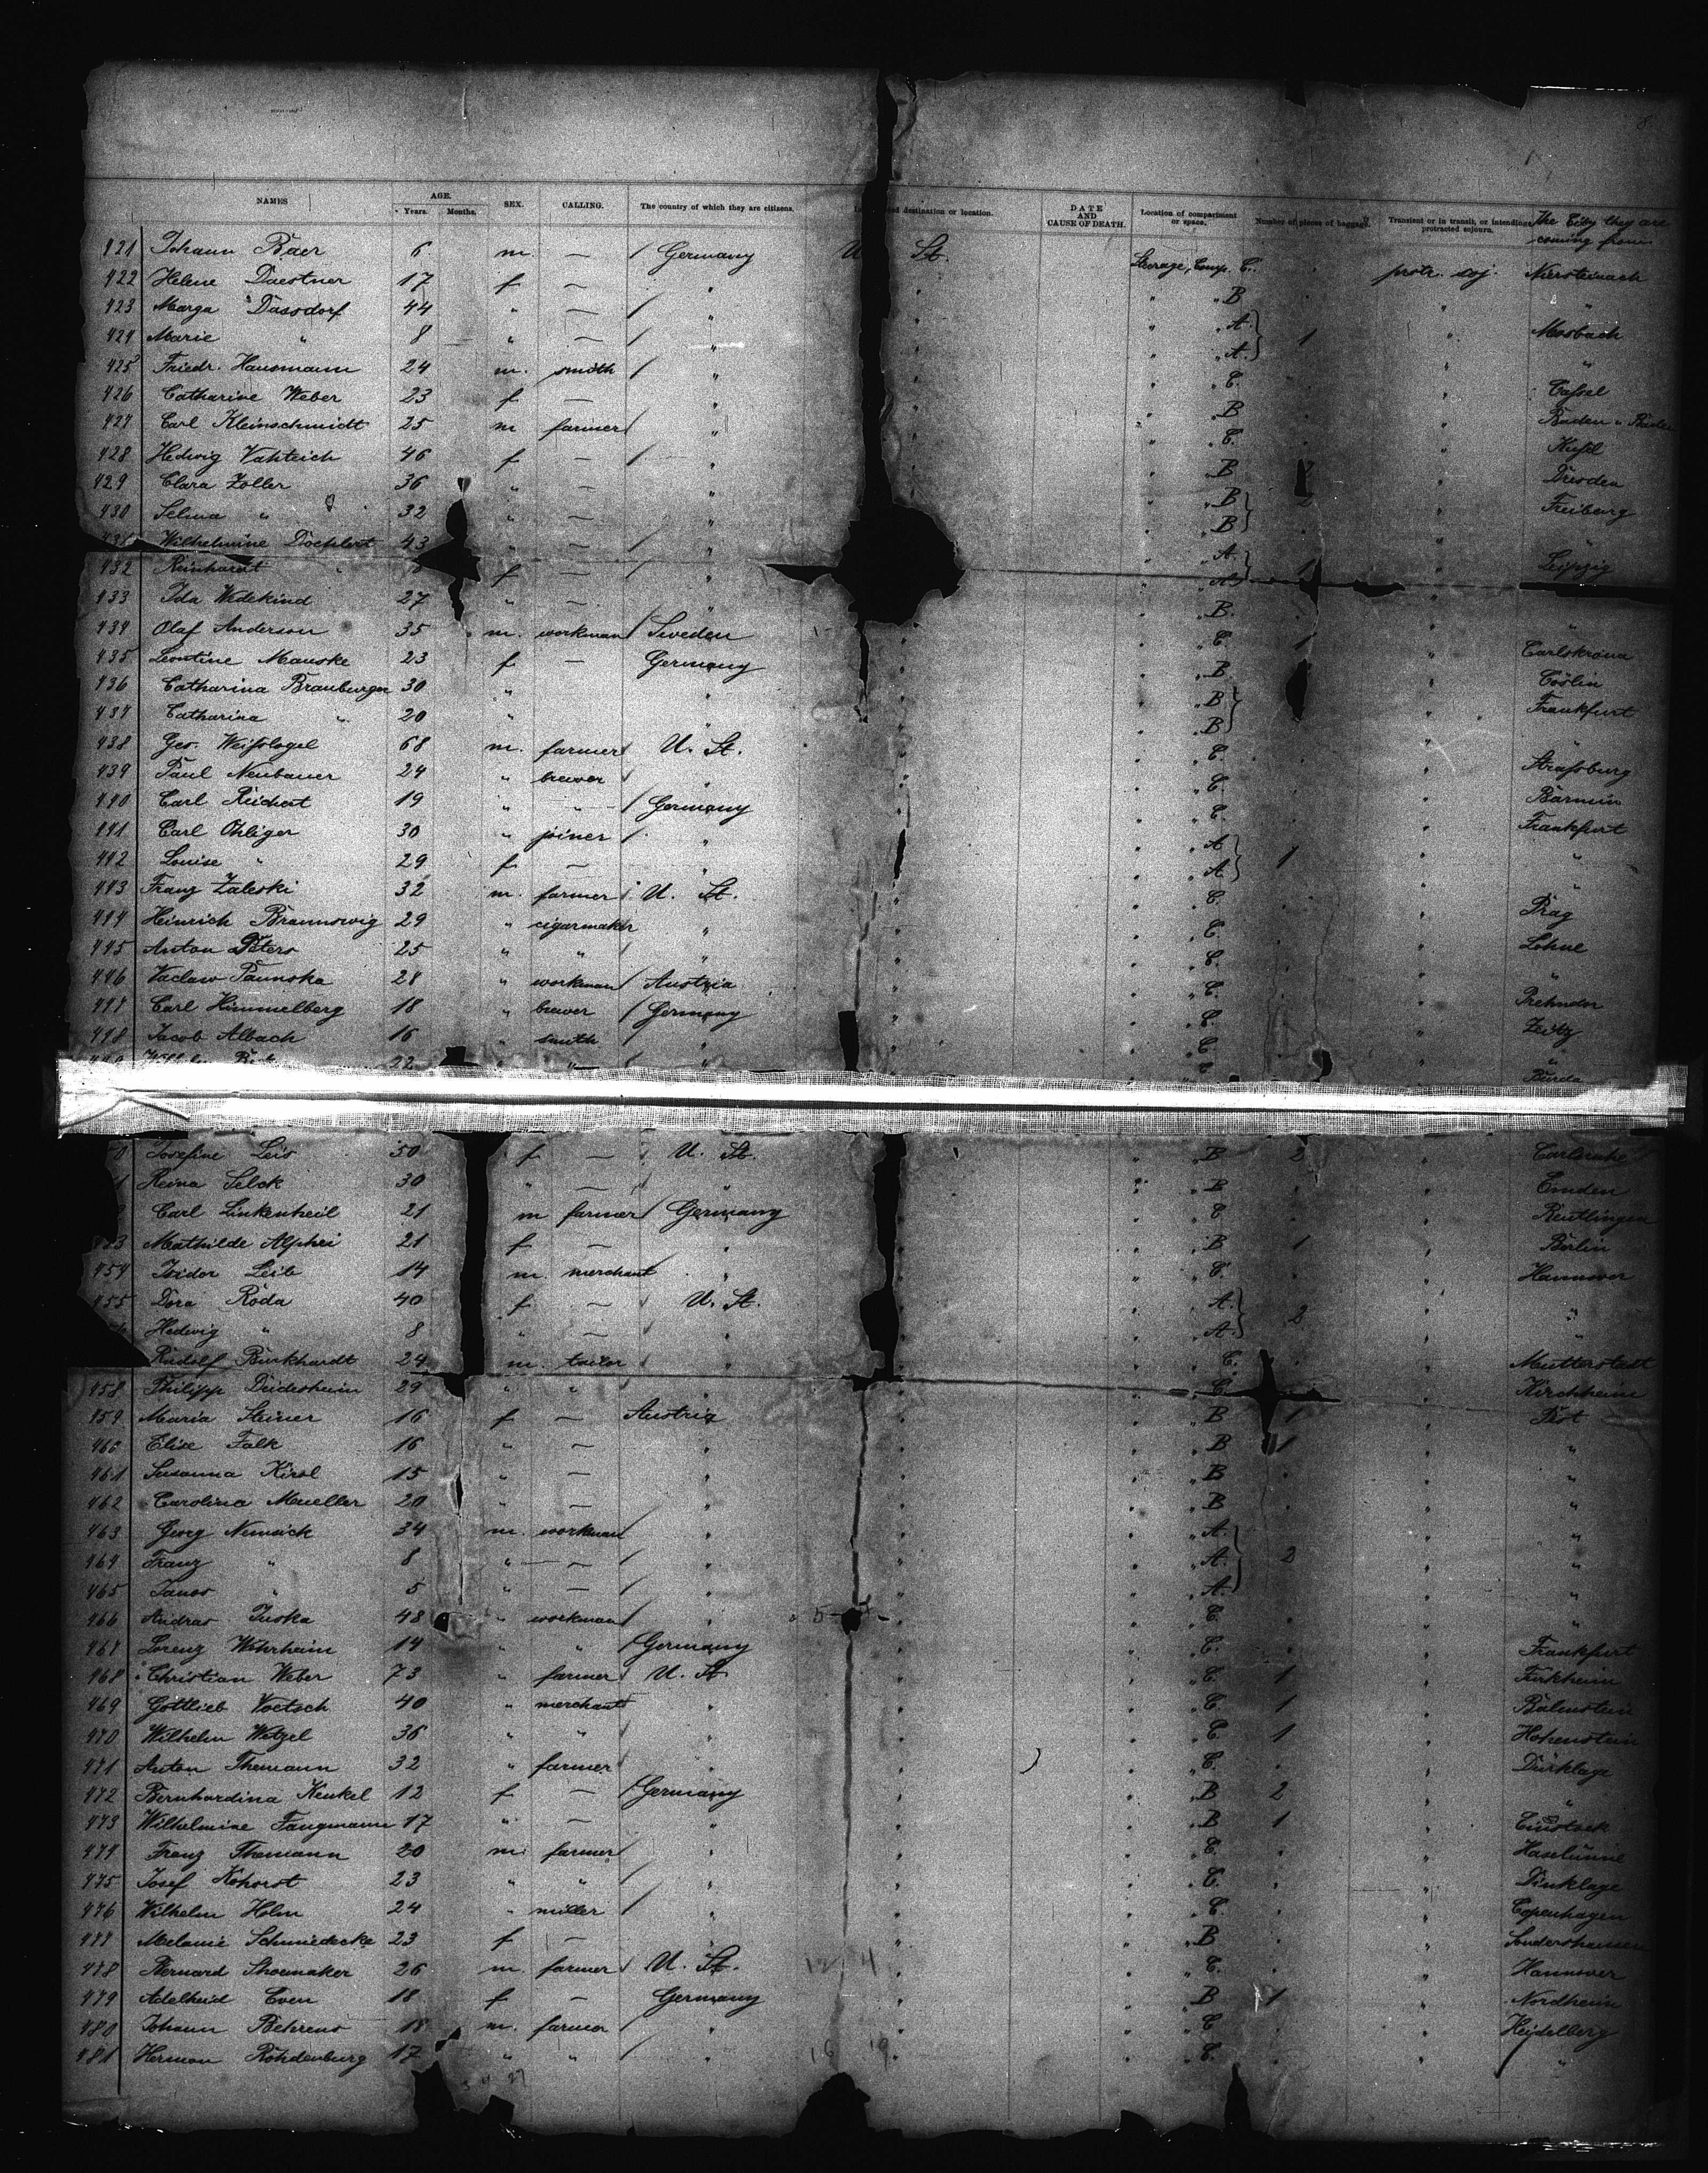 8
NAMES AGE. Years. Months. SEX. CALLING. The country of which they are citizens. destination or location. DATE AND CAUSE OF DEATH. Location of compartment or space. Number of pieces of baggage. Transient or in transit, or intending protracted sojourn. The City they are coming from
421 Johann Baer 6 m. — / Germany U St. Steerage, Comp. C. protr. soj. Niersteinach
422 Helene Daestner 17 f — " " " B " "
423 Marga Dassdorf 44 " — / " " " A } 1 " Mosbach
424 Marie " 8 " — / " " " A } " "
425 Friedr. Hausmann 24 m. smith / " " " C. " Cassel
426 Catharine Weber 23 f — " " " B "
427 Carl Kleinschmidt 25 m farmer / " " " C. "
428 Hedwig Vahteich 46 f — / " " " B 2 " Dresden
429 Clara Zoller 36 " — " " " B } 2 " Freiburg
430 Selma " 32 " — / " " " B }
431 Wilhelmine Dochlert 43 " — / " " " A } 1 " Leipzig
432 Reinhardt " f — / " " " A } "
433 Ida Wedekind 27 " — " " " B. " "
434 Olaf Anderson 35 m. workman / Sweden " " C. 1 " Carlskrona
435 Leontine Manske 23 f — Germany " " B. " Cöslin
436 Catharina Branburger 30 " " " " B } " Frankfurt
437 Catharina " 20 " " " " B } " "
438 Geo. Weisslogel 68 m. farmer / U. St. " " C. " Strassburg
439 Paul Neubauer 24 " brewer / " " " C. " Barmen
440 Carl Reichert 19 " " / Germany " " C. " Frankfurt
441 Carl Ohliger 30 " joiner / " " " A } 1 " "
442 Louise " 29 f — " " " A } " "
443 Franz Zaleski 32 m. farmer / U. St. " " C. " Prag
444 Heinrich Braunswig 29 " cigarmaker " " " C. " Lohne
445 Anton Peters 25 " " / " " " C. " "
446 Vaclaw Paunska 28 " workman / Austria " " C. "
447 Carl Himmelberg 18 " brewer / Germany " " C. " Zeitz
448 Jacob Albach 16 " smith / " " " C. " "
22
0 Josefine Leis 50 f — / U. St. " B 2 " Carlsruhe
1 Reina Selck 30 " — / " " B " Emden
Carl Linkenheil 21 m farmer / Germany " C " Reutlingen
453 Mathilde Alphei 21 f — " " " B 1 " Berlin
454 Isidor Leib 14 m. merchant " " " C. " Hannover
455 Dora Roda 40 f — / U. St. " " A. } 2 " "
Hedwig " 8 " — / " " " A. } " "
Rudolf Burkhardt 24 m. tailor / " " " C. " Mutterstadt
458 Philipp Deidesheim 29 " " " " " C. " Kirchheim
459 Maria Steiner 16 f — Austria " " B 1 " Pest
460 Elise Falk 16 " — " " " B 1 " "
461 Susanna Kirsl 15 " — " " " B " "
462 Carolina Mueller 20 " — " " " B " "
463 Georg Nemsick 34 m. workman " " " A. } " "
464 Franz " 8 " — / " " " A. } 2 " "
465 Janos " 5 " — / " " " A. } " "
466 Andras Juska 48 " workman / " " " C. " "
467 Lorenz Wohrheim 14 " " / Germany " " C. " Frankfurt
468 Christian Weber 73 " farmer / U. St " " C. 1 " Türkheim
469 Gottlieb Voetsch 40 " merchant " " " C. 1 "
470 Wilhelm Wetzel 36 " " / " " " C. 1 " Hohenstein
471 Anton Themann 32 " farmer " " " C. " Dinklage
472 Bernhardina Kenkel 12 f — / Germany " " B 2 " "
473 Wilhelmine Fangmann 17 " — " " " B 1 "
474 Franz Themann 20 m. farmer / " " " C. " Haselünne
475 Josef Kohorst 23 " " / " " " C. " Dinklage
476 Wilhelm Holm 24 " miller / " " " C. " Copenhagen
477 Melanie Schmiedecke 23 f — " " " B " Sondershausen
478 Bernard Shoemaker 26 m. farmer / U. St. " " C. " Hannover
479 Adelheid Even 18 f — Germany " " B 1 " Nordheim
480 Johann Behrens 18 m. farmer / " " " C " Heidelberg
481 Herman Rohdenburg 17 " " / " " " C. " "